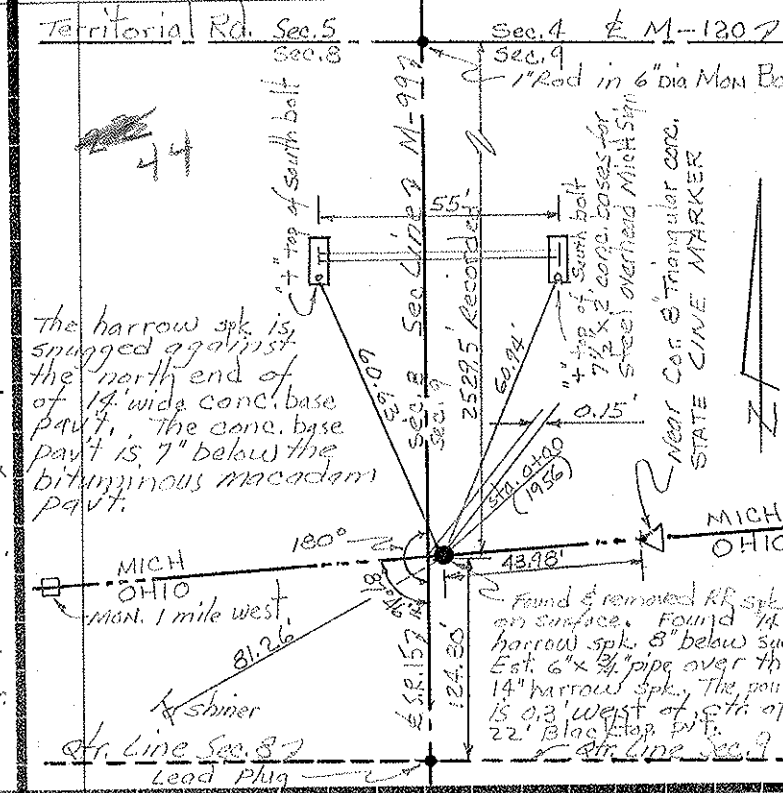 Territorial Rd. Sec. 5
Sec. 8
Sec. 4 ℄ M-120
Sec. 9
1" Rod in 6" Dia Mon Bo
44
"+" top of south bolt
Sec Line M-99
2529.5' Recorded
55'
"+" top of south bolt
7½ x 2 conc. bases for
Steel overhead Mich Sign
Near Cor. 8" Triangular conc.
STATE LINE MARKER
N
The harrow spk is
snugged against
the north end of
of 14' wide conc. base
pav't. The conc. base
pav't is 7" below the
bituminous macadam
pav't.
69.07
Sec. 8
Sec. 9
60.94'
0.15'
Sta. 0+00
(1956)
180°
MICH
OHIO
MICH
OHIO
43.98'
MON. 1 mile west
81.26'
shiner
℄ S.R. 157
124.80'
Found & removed RR spk
on surface. Found 14
harrow spk 8" below su
Est. 6" x ¾" pipe over th
14" harrow spk. The poi
is 0.3' west of ctr. of
22' Blacktop pvt.
Qtr. Line Sec. 8
Qtr. Line Sec. 9
Lead Plug